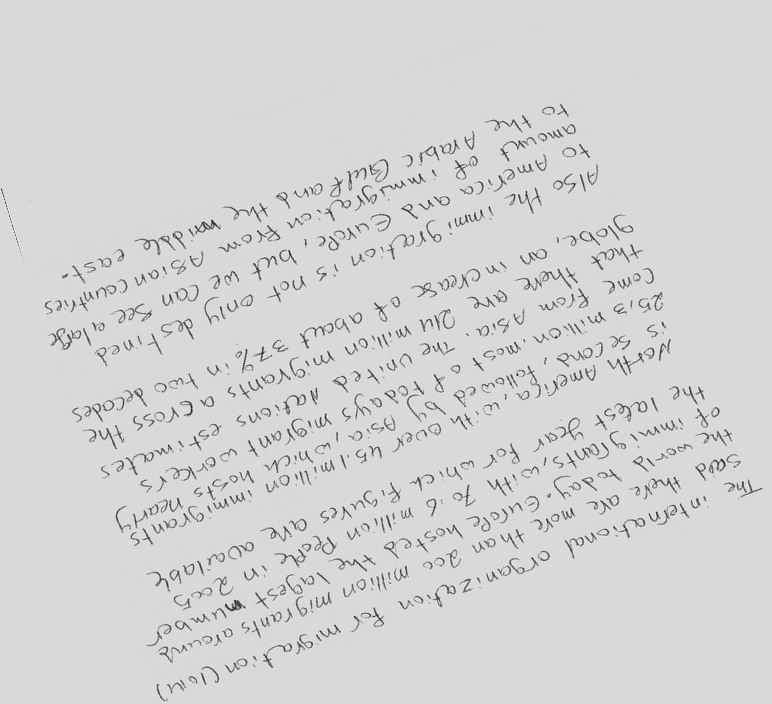 The international organization for migration (IOM)
said there are more than 200 million migrants around
the world today. Europe hosted the lagest number
of immigrants, with 70.6 million People in 2005
the latest year for which figures are available
North America, with over 45.1 million immigrants
is second, followed by Asia, which hosts nearly
25,3 million. most of todays migrant workers
come from Asia. The united Nations estimates
that there are 214 million migrants across the
globe, an increase of about 37% in two decades
Also the immigration is not only destined
to America and Europe, but we can see a large
amount of immigration from Asian countries
to the Arabic Gulf and the middle east.